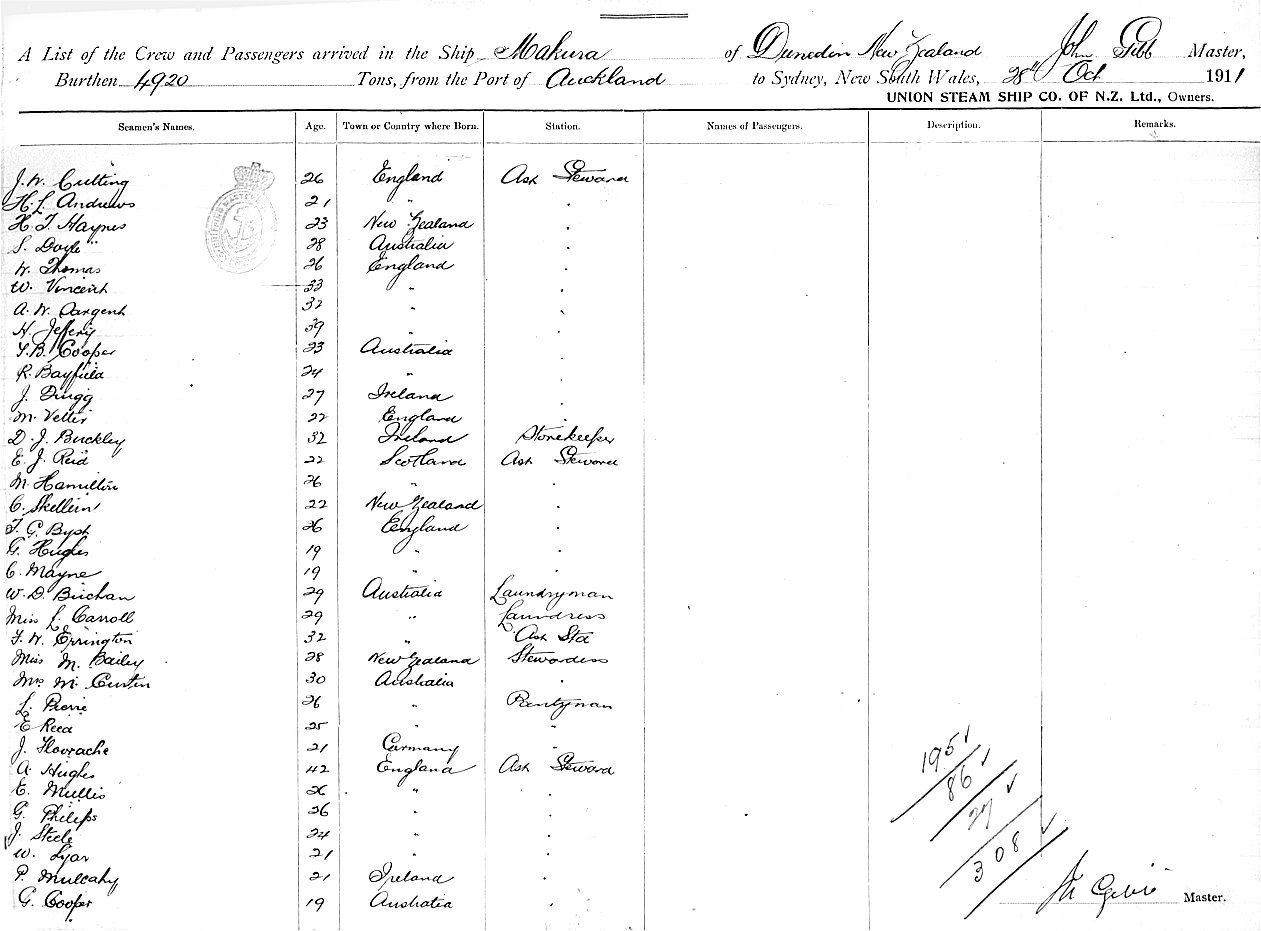 A List of the Crew and Passengers arrived in the Ship Makura of Dunedin New Zealand John Gibb Master,
Burthen 4920 Tons, from the Port of Auckland to Sydney, New South Wales, 28th Oct 1911
UNION STEAM SHIP CO. OF N.Z. Ltd., Owners.
Seamen's Names. Age. Town or Country where Born. Station. Names of Passengers. Description. Remarks.
J. W. Cutting 26 England Asst Steward
H. L. Andrews 21 "
H. T. Haynes 23 New Zealand
S. Doyle 28 Australia
W. Thomas 26 England
W. Vincent 33 "
A. W. Sargent 32 "
H. Jeffery 39 "
F. B. Cooper 23 Australia
R. Bayfield 24 "
J. 27 Ireland
M. 22 England
D. J. Buckley 32 Ireland Storekeeper
E. J. Reid 22 Scotland Asst Steward
M. Hamilton 26 "
C. Skellein 22 New Zealand
T. G. 26 England
G. Hughes 19 "
C. Mayne 19 "
W. D. Buchan 29 Australia Laundryman
Miss L. Carroll 29 " Laundress
F. W. Errington 32 " Asst Std
Miss M. Bailey 28 New Zealand Stewardess
Mrs M. Curtin 30 Australia
L. Pierre 26 " Pantryman
E. Reed 25 " "
J. 21 Germany "
A. Hughes 42 England Asst Steward
E. Mullis 26 "
G. Philips 26 "
J. Steele 24 "
W. Lyar 21 "
P. Mulcahy 21 Ireland
G. Cooper 19 Australia
195
86
27
308
Master.